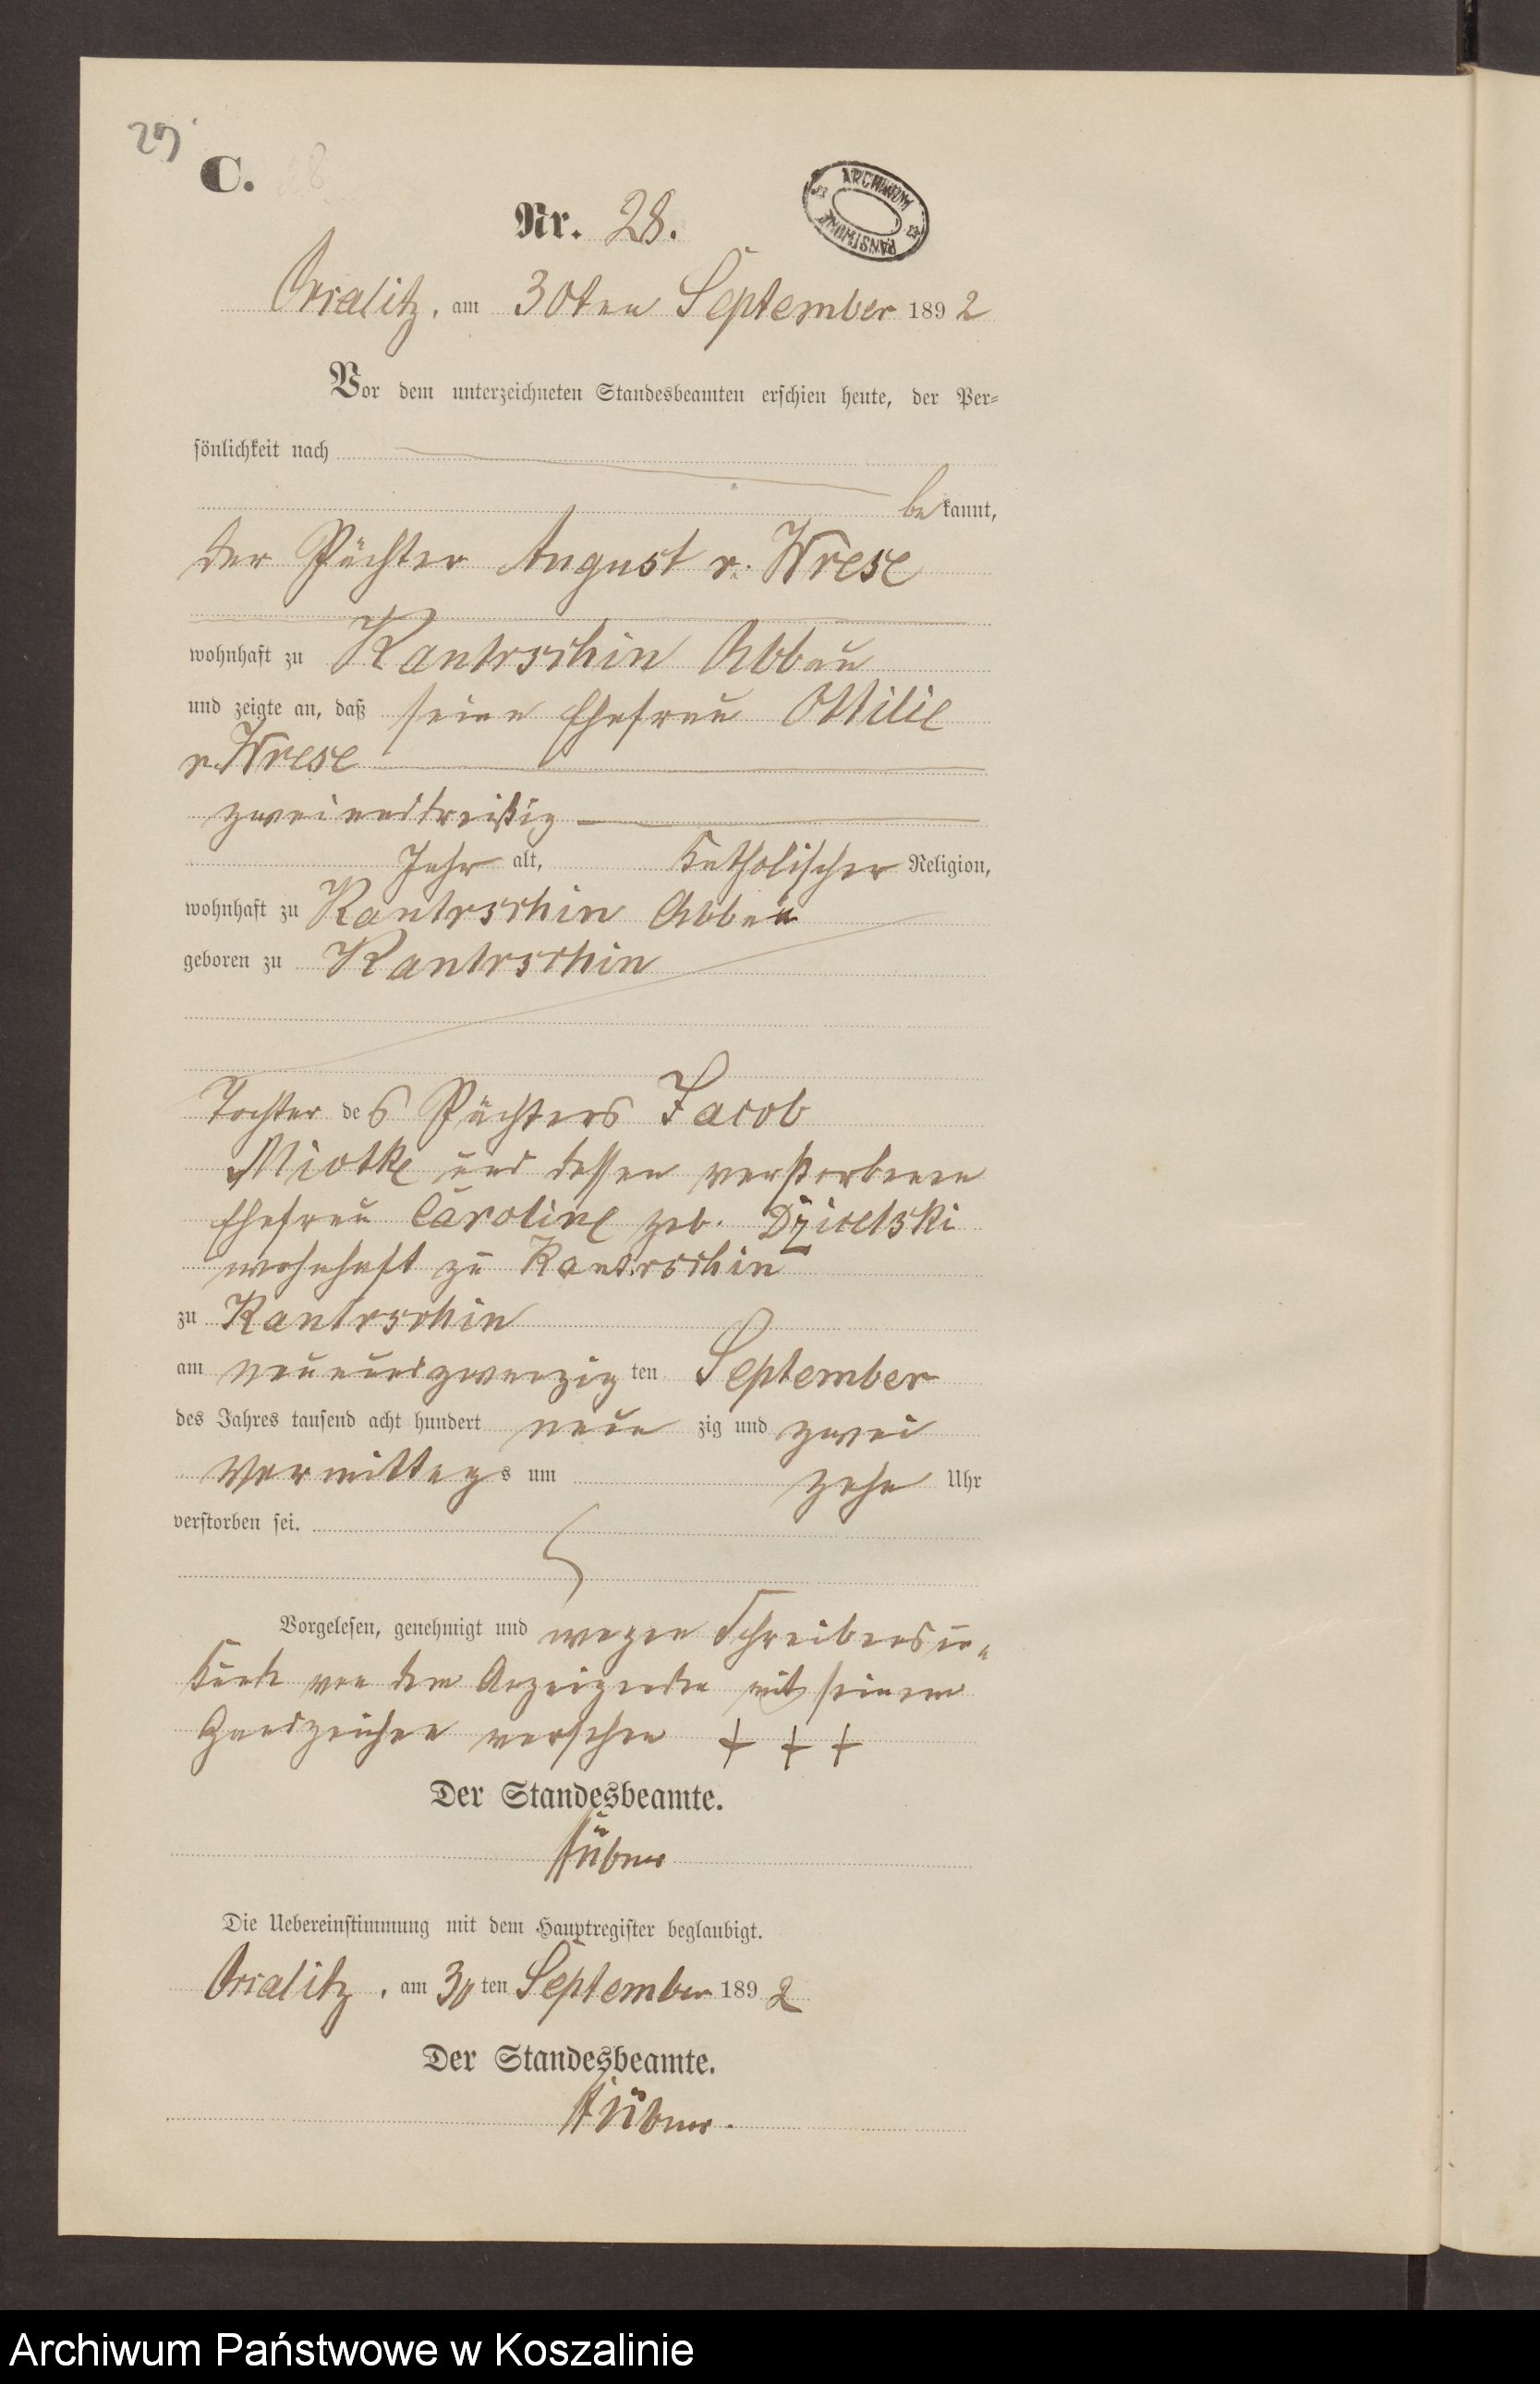 29.
C.
ARCHIWUM PAŃSTWOWE
Nr. 28.
Ossalitz, am 30ten September 1892
Vor dem unterzeichneten Standesbeamten erschien heute, der Per-
sönlichkeit nach
bekannt,
der Pächter August v. Wrese
wohnhaft zu Kantrschin Abbau
und zeigte an, daß seine Ehefrau Ottilie
v. Wrese
zweiunddreißig
Jahr alt, katholischer Religion,
wohnhaft zu Kantrschin Abbau
geboren zu Kantrschin
Tochter des Pächters Jacob
Miotke und dessen verstorbenen
Ehefrau Caroline geb.
wohnhaft zu Kantrschin
zu Kantrschin
am neunundzwanzigten September
des Jahres tausend acht hundert neunzig und zwei
Vormittags um zehn Uhr
verstorben sei.
Vorgelesen, genehmigt und wegen Schreibensun-
kunde von dem Anzeigenden mit seinem
Handzeichen versehen + + +
Der Standesbeamte.
Die Uebereinstimmung mit dem Hauptregister beglaubigt.
Ossalitz, am 30ten September 1892
Der Standesbeamte.
Archiwum Państwowe w Koszalinie